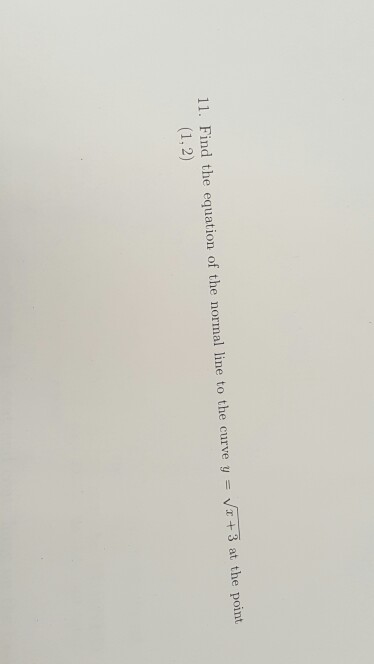 11. Find the equation of the normal line to the curve y = √x + 3 at the point
(1, 2)